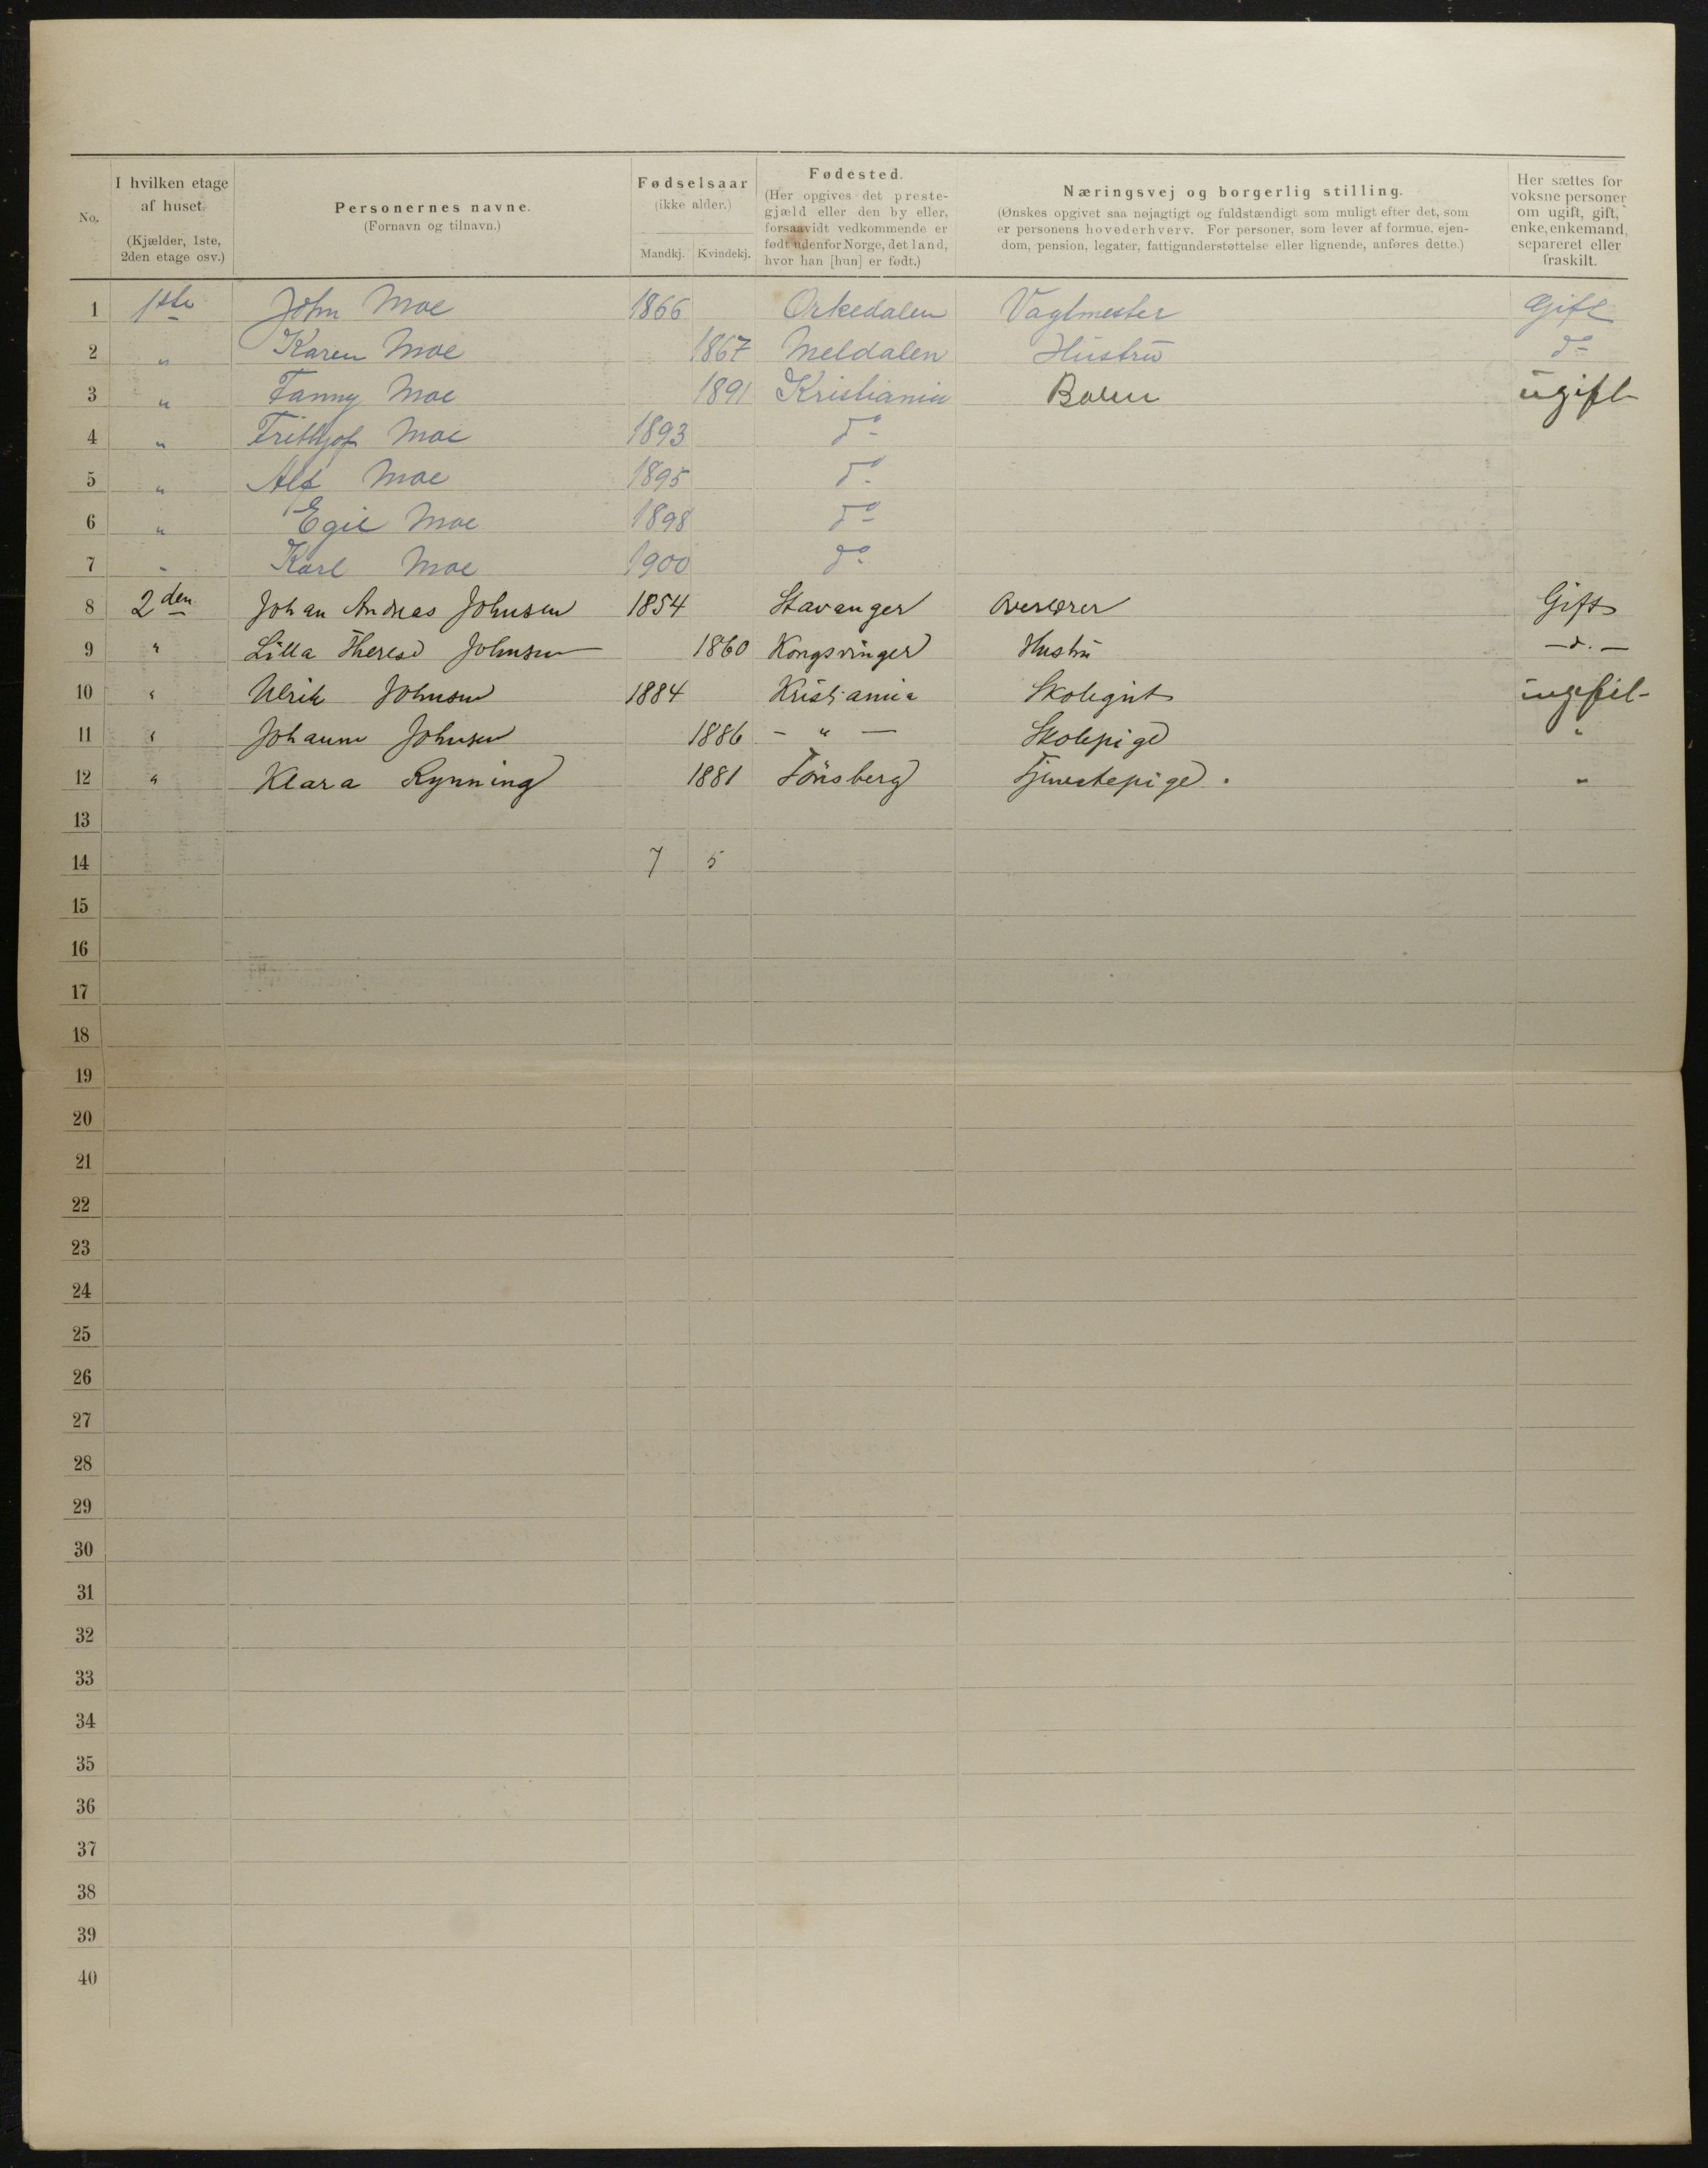 No. | I hvilken etage af huset. (Kjælder, 1ste, 2den etage osv.) | Personernes navne. (Fornavn og tilnavn.) | Fødselsaar (ikke alder.) Mandkj. Kvindekj. | Fødested. (Her opgives det prestegjæld eller den by eller, forsaavidt vedkommende er født udenfor Norge, det land, hvor han [hun] er født.) | Næringsvej og borgerlig stilling. (Ønskes opgivet saa nøjagtigt og fuldstændigt som muligt efter det, som er personens hovederhverv. For personer, som lever af formue, ejendom, pension, legater, fattigunderstøttelse eller lignende, anføres dette.) | Her sættes for voksne personer om ugift, gift, enke, enkemand, separeret eller fraskilt.
1 1ste John Moe 1866 Orkedalen Vagtmester Gift
2 " Karen Moe 1867 Meldalen Hustru do
3 " Fanny Moe 1891 Kristiania ugift
4 " Frithjof Moe 1893 do
5 " Alf Moe 1895 do
6 " Egil Moe 1898 do
7 " Karl Moe 1900 do
8 2den Johan Andreas Johnsen 1854 Stavanger Overlærer Gift
9 " Lilla Therese Johnsen 1860 Kongsvinger Hustru — d. —
10 " Ulrik Johnsen 1884 Kristiania Skolegut ugift
11 " Johanne Johnsen 1886 — " — Skolepige "
12 " Klara Rynning 1881 Tönsberg Tjenestepige. "
13
14 7 5
15
16
17
18
19
20
21
22
23
24
25
26
27
28
29
30
31
32
33
34
35
36
37
38
39
40